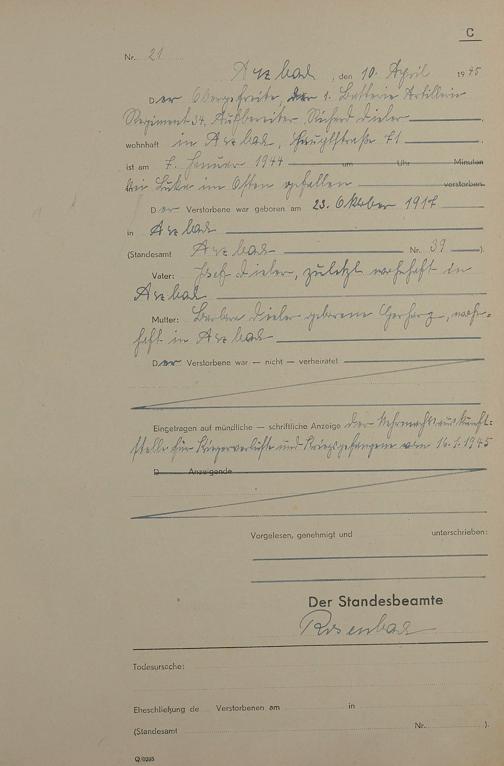 C
Nr. 21
Arzbach, den 10. April 1945
Der Obergefreite, der 1. Batterie Artillerie
Regiment 34, Richard Dieler
wohnhaft in Arzbach, Hauptstraße 71
ist am 7. Januar 1944 um Uhr Minuten
bei im Osten gefallen verstorben.
Der Verstorbene war geboren am 23. Oktober 1917
in Arzbach
(Standesamt Arzbach Nr. 39 ).
Vater: Josef Dieler, zuletzt wohnhaft in
Arzbach
Mutter: Barbara Dieler geborene Gerharz, wohn-
haft in Arzbach
Der Verstorbene war — nicht — verheiratet
Eingetragen auf mündliche — schriftliche Anzeige der Wehrmachtauskunft-
stelle für Kriegerverluste und Kriegsgefangene vom 16.1.1945
D Anzeigende
Vorgelesen, genehmigt und unterschrieben:
Der Standesbeamte
Todesursache:
Eheschließung de Verstorbenen am in
(Standesamt Nr. ).